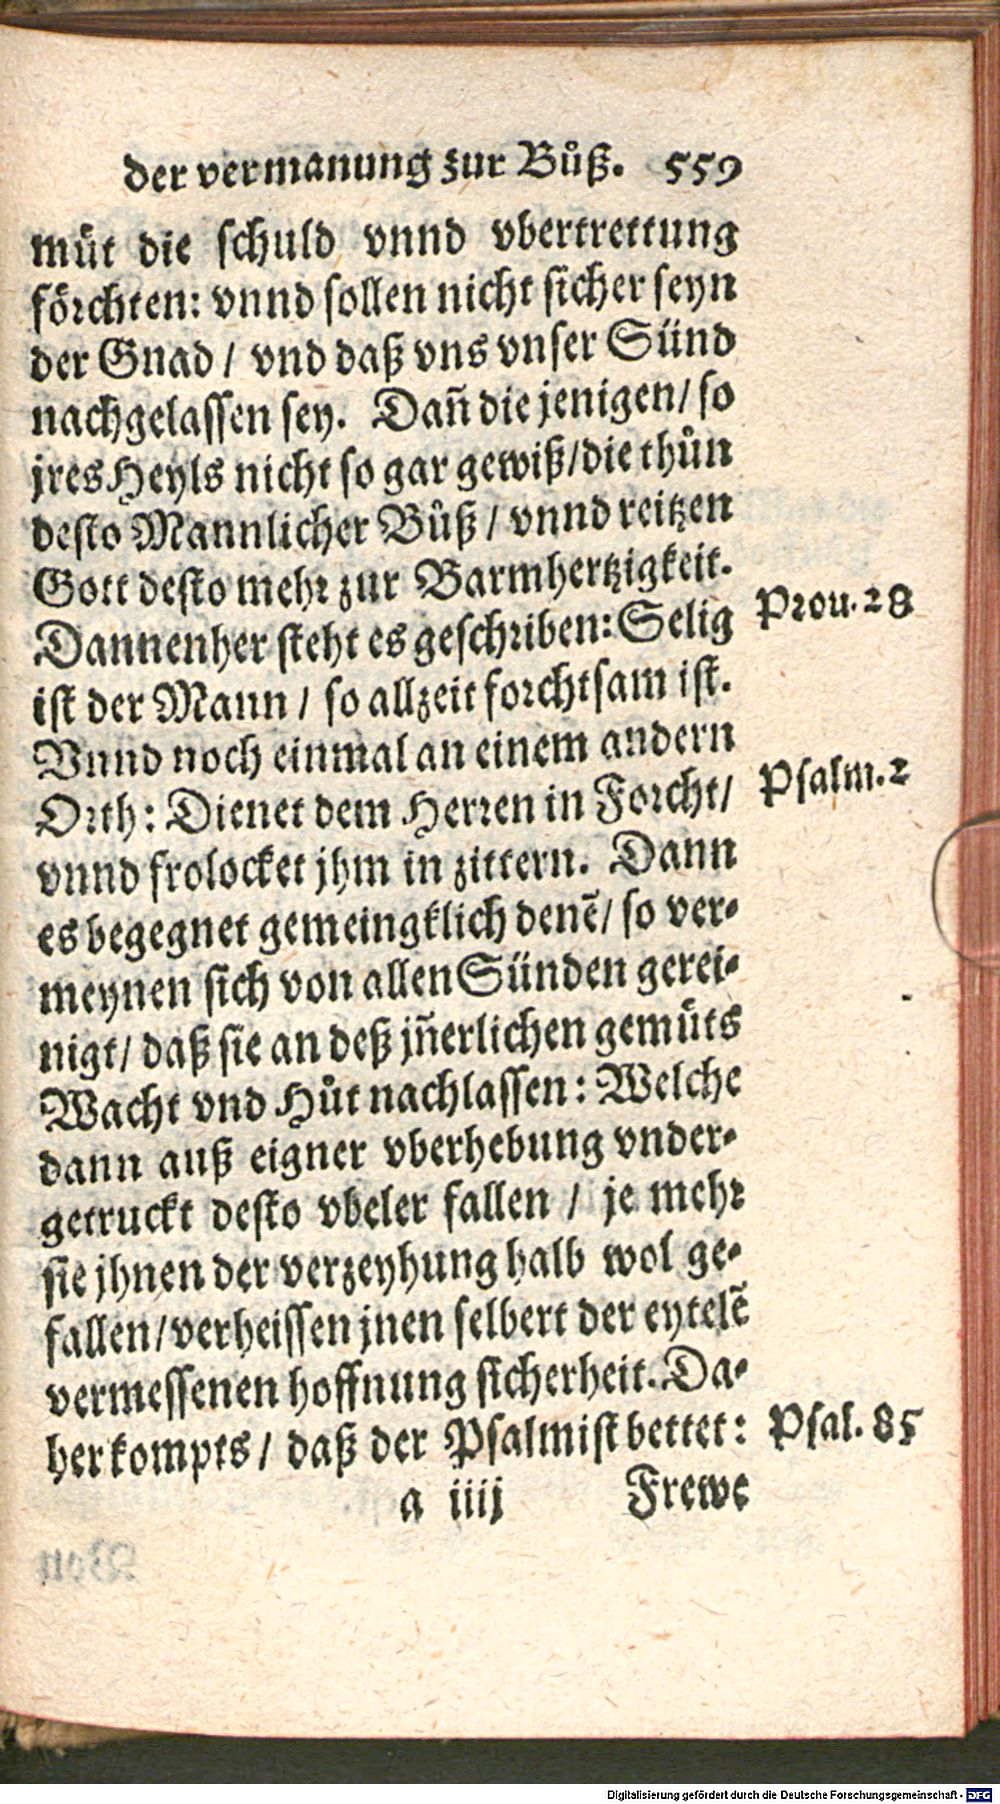 der vermanung zur Bůß. 559
můt die schuld vnnd vbertrettung
förchten: vnnd sollen nicht sicher seyn
der Gnad / vnd daß vns vnser Sünd
nachgelassen sey. Dañ die jenigen/ so
jres Heyls nicht so gar gewiß/die thůn
desto Mannlicher Bůß / vnnd reitzen
Gott desto mehr zur Barmhertzigkeit.
Dannenher steht es geschriben: Selig Prou. 28
ist der Mann / so allzeit forchtsam ist.
Vnnd noch einmal an einem andern
Orth: Dienet dem Herren in Forcht/ Psalm. 2
vnnd frolocket jhm in zittern. Dann
es begegnet gemeingklich denẽ/ so ver-
meynen sich von allen Sünden gerei-
nigt/ daß sie an deß jñerlichen gemůts
Wacht vnd Hůt nachlassen: Welche
dann auß eigner vberhebung vnder-
getruckt desto vbeler fallen / je mehr
sie jhnen der verzeyhung halb wol ge-
fallen/verheissen jnen selbert der eytelẽ
vermessenen hoffnung sicherheit. Da-
her kompts/ daß der Psalmist bettet: Psal. 85
a iiij Frewe
Digitalisierung gefördert durch die Deutsche Forschungsgemeinschaft - DFG